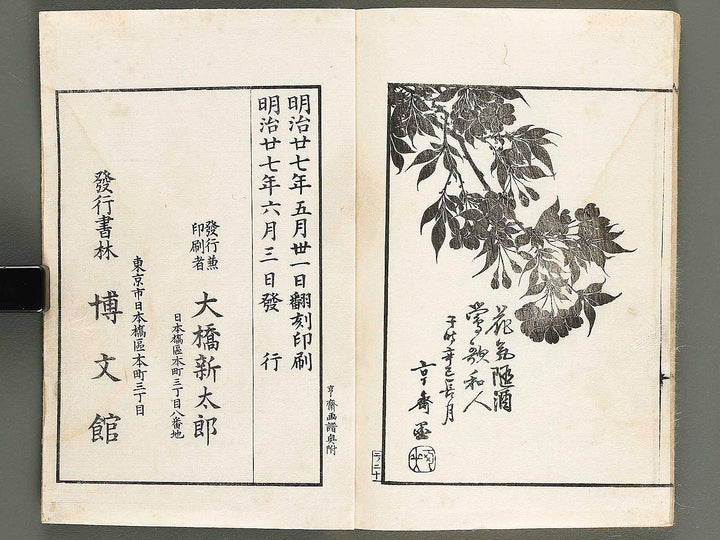 花氣随酒
鶯歌和人
于時辛巳長月
亨齋墨
亨齋画譜奥附
明治廿七年五月卅一日翻刻印刷
明治廿七年六月三日發行
發行兼
印刷者
大橋新太郎
日本橋區本町三丁目八番地
東京市日本橋區本町三丁目
發行書林
博文館